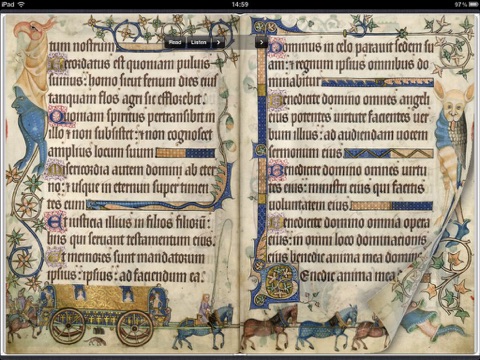 iPad 14:59 97%
Read Listen
tum nostrum
Recordatus est quoniam puluis
sumus: homo sicut fenum dies eius
tanquam flos agri sic efflorebit.
Quoniam spiritus pertransibit in
illo ⁊ non subsistet: ⁊ non cognoscet
amplius locum suum
autem domini ab eter
no: ⁊ usque in eternum super timen
tes eum
Et iusticia illius in filios filiorum:
hiis qui seruant testamentum eius.
Et memores sunt mandatorum
ipsius: ad faciendum ea.
Dominus in celo parauit sedem su
am: ⁊ regnum ipsius omnibus do
minabitur
Benedicite domino omnes angeli
eius potentes uirtute facientes uer
bum illius: ad audiendam uocem
sermonum eius
Benedicite domino omnes uirtu
tes eius: ministri eius qui facitis
uoluntatem eius
Benedicite domino omnia opera
eius: in omni loco dominacionis
eius benedic anima mea domino
Benedic anima mea